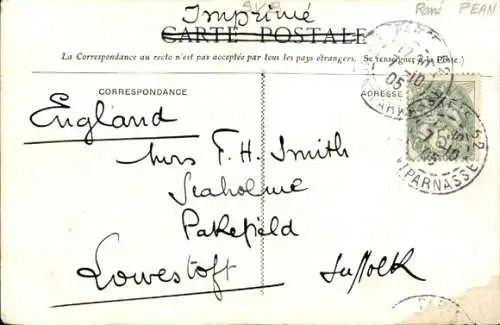 SVB
René PEAN
Imprimé
CARTE POSTALE
La Correspondance au recto n'est pas acceptée par tous les pays étrangers. (Se renseigner à la Poste.)
CORRESPONDANCE
ADRESSE
England
Mrs T. H. Smith
Seaholme
Pakefield
Lowestoft
Suffolk
PARNASSE
05